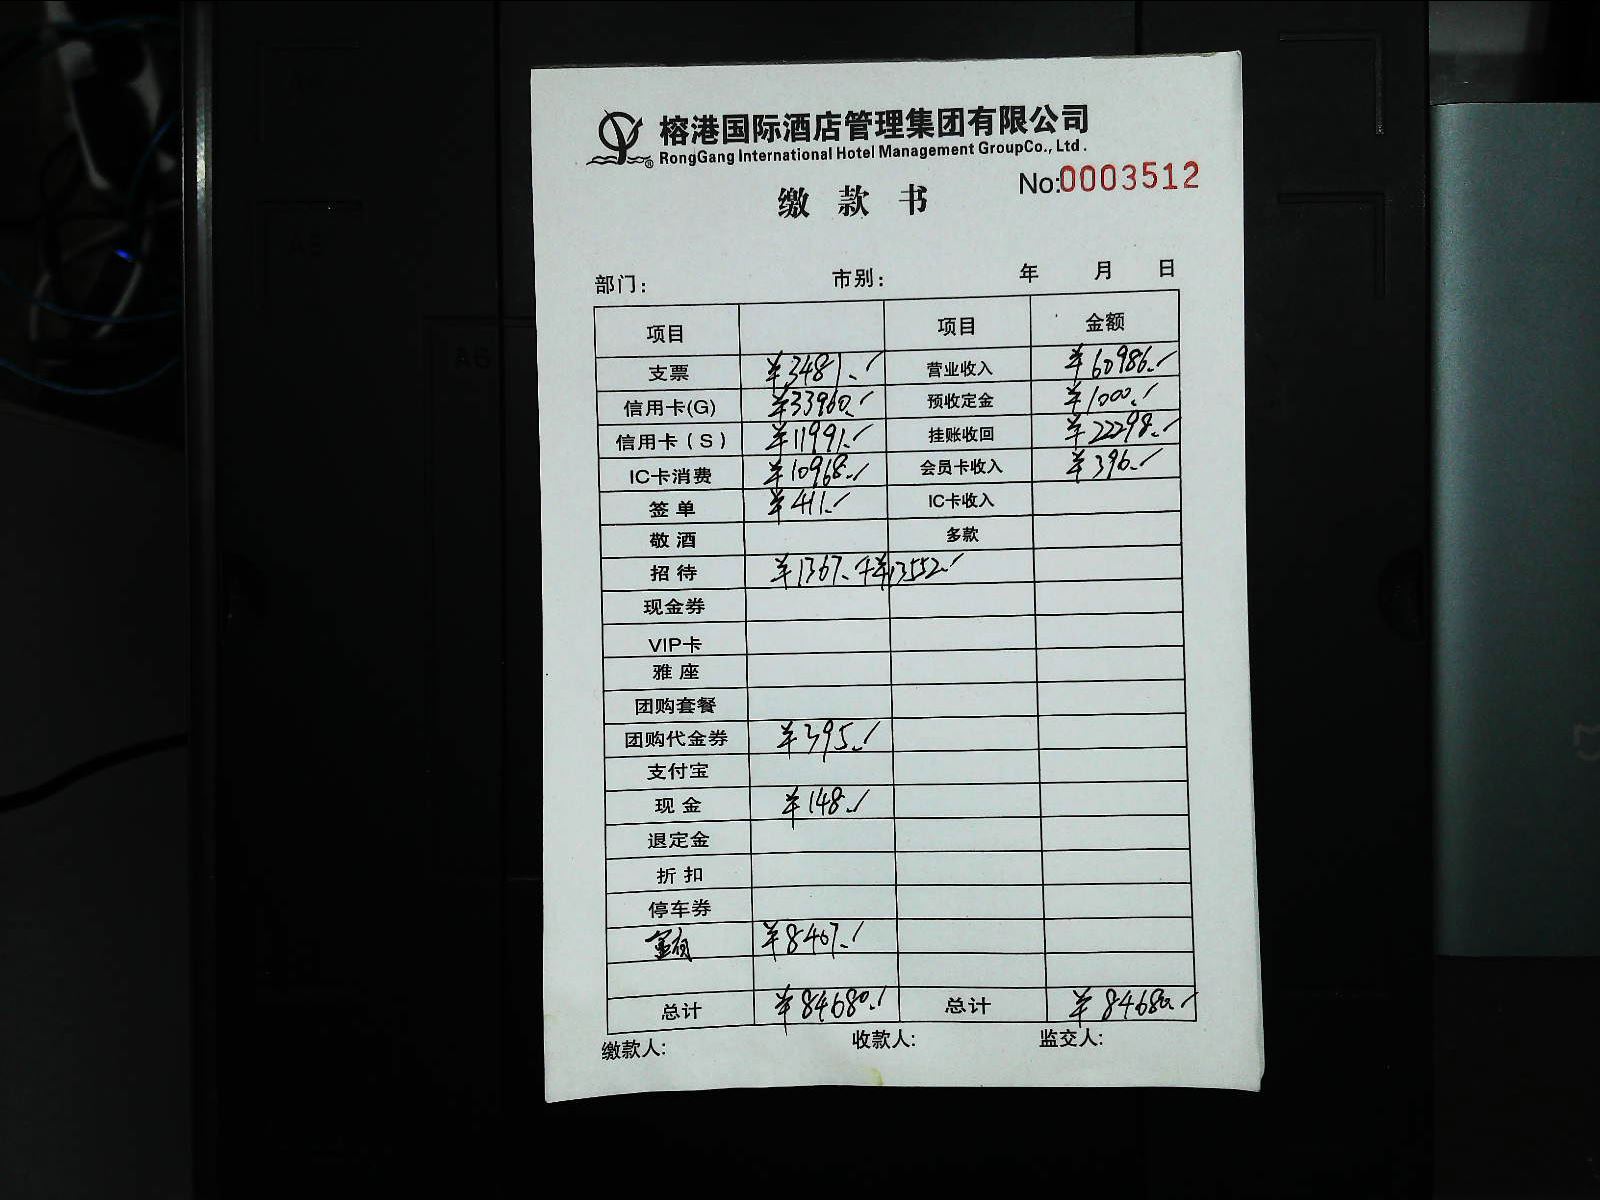 榕港国际酒店管理集团有限公司
RongGang International Hotel Management GroupCo., Ltd.
No:0003512
缴款书
部门: 市别: 年 月 日
项目 项目 金额
支票 ¥3481.✓ 营业收入 ¥60986.✓
信用卡(G) ¥33960.✓ 预收定金 ¥1000.✓
信用卡(S) ¥11991.✓ 挂账收回 ¥22298.✓
IC卡消费 ¥10968.✓ 会员卡收入 ¥396.✓
签单 ¥411.✓ IC卡收入
敬酒 多款
招待 ¥1367.+¥13552.✓
现金券
VIP卡
雅座
团购套餐
团购代金券 ¥395.✓
支付宝
现金 ¥148.✓
退定金
折扣
停车券
¥8407.✓
总计 ¥84680.✓ 总计 ¥84680.✓
缴款人: 收款人: 监交人:
A6